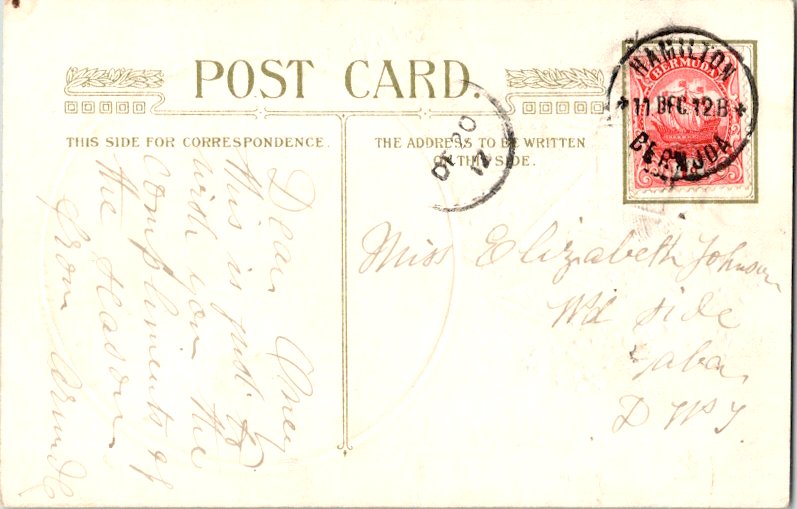 POST CARD
THIS SIDE FOR CORRESPONDENCE.
THE ADDRESS TO BE WRITTEN
ON THIS SIDE.
HAMILTON
BERMUDA
11 DEC 12 B
BERMUDA
DE 20
12
Dear
this is just to
wish you the
compliments of
the season
from
Miss Elizabeth Johnson
W'd side
Saba
D W I